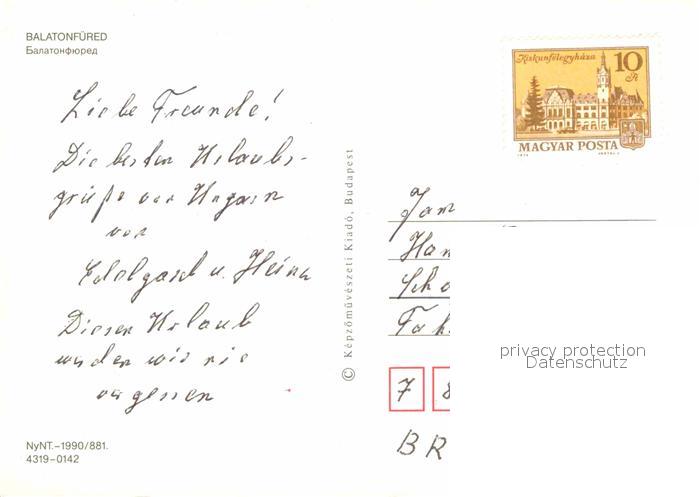 BALATONFÜRED
Балатонфюред
Liebe Freunde!
Die besten Urlaubs-
grüße aus Ungarn
von
Edelgard u. Heinz
Diesen Urlaub
werden wir nie
vergessen
NyNT.–1990/881.
4319–0142
© Képzőművészeti Kiadó, Budapest
Kiskunfélegyháza
10 Ft
MAGYAR POSTA
Fam
Han
Scho
Fah
7 8
BR
privacy protection
Datenschutz